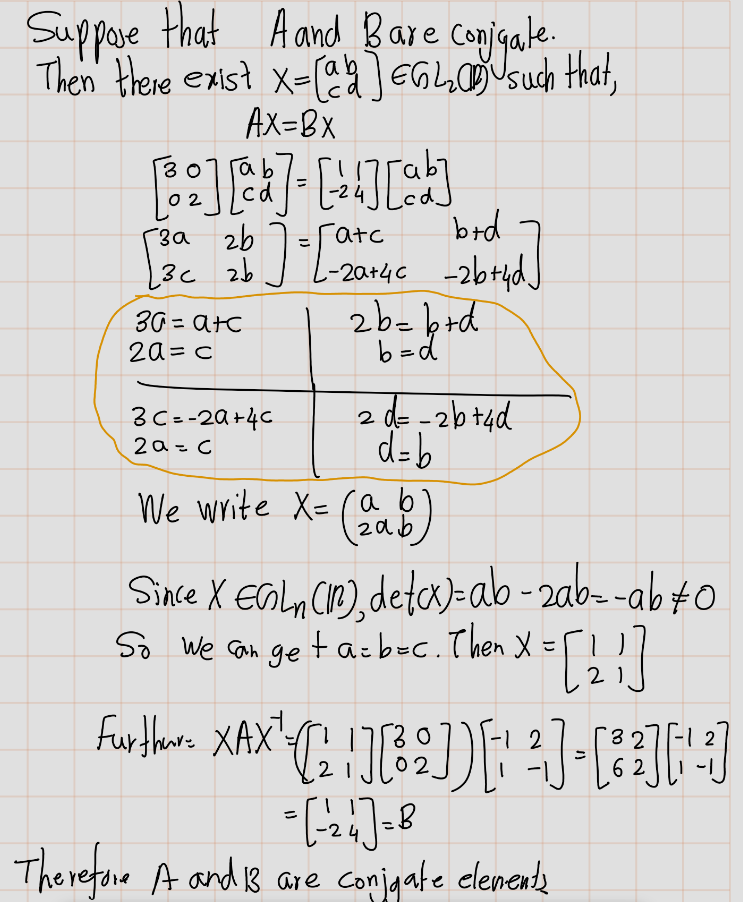 Suppose that A and B are conjgate.
Then there exist X = [a b c d] ∈ GL₂(ℝ) such that,
AX = BX
[3 0 0 2] [a b c d] = [1 1 -2 4] [a b c d]
[3a 2b 3c 2b] = [a+c b+d -2a+4c -2b+4d]
3a = a+c 2b = b+d
2a = c b = d
3c = -2a+4c 2d = -2b+4d
2a = c d = b
We write X = (a b 2a b)
Since X ∈ GLn(ℝ), det(x) = ab - 2ab = -ab ≠ 0
So we can get a=b=c. Then X = [1 1 2 1]
Further= XAX⁻¹ = ([1 1 2 1] [3 0 0 2]) [-1 2 1 -1] = [3 2 6 2] [-1 2 1 -1]
= [1 1 -2 4] = B
Therefore A and B are conjgate elements